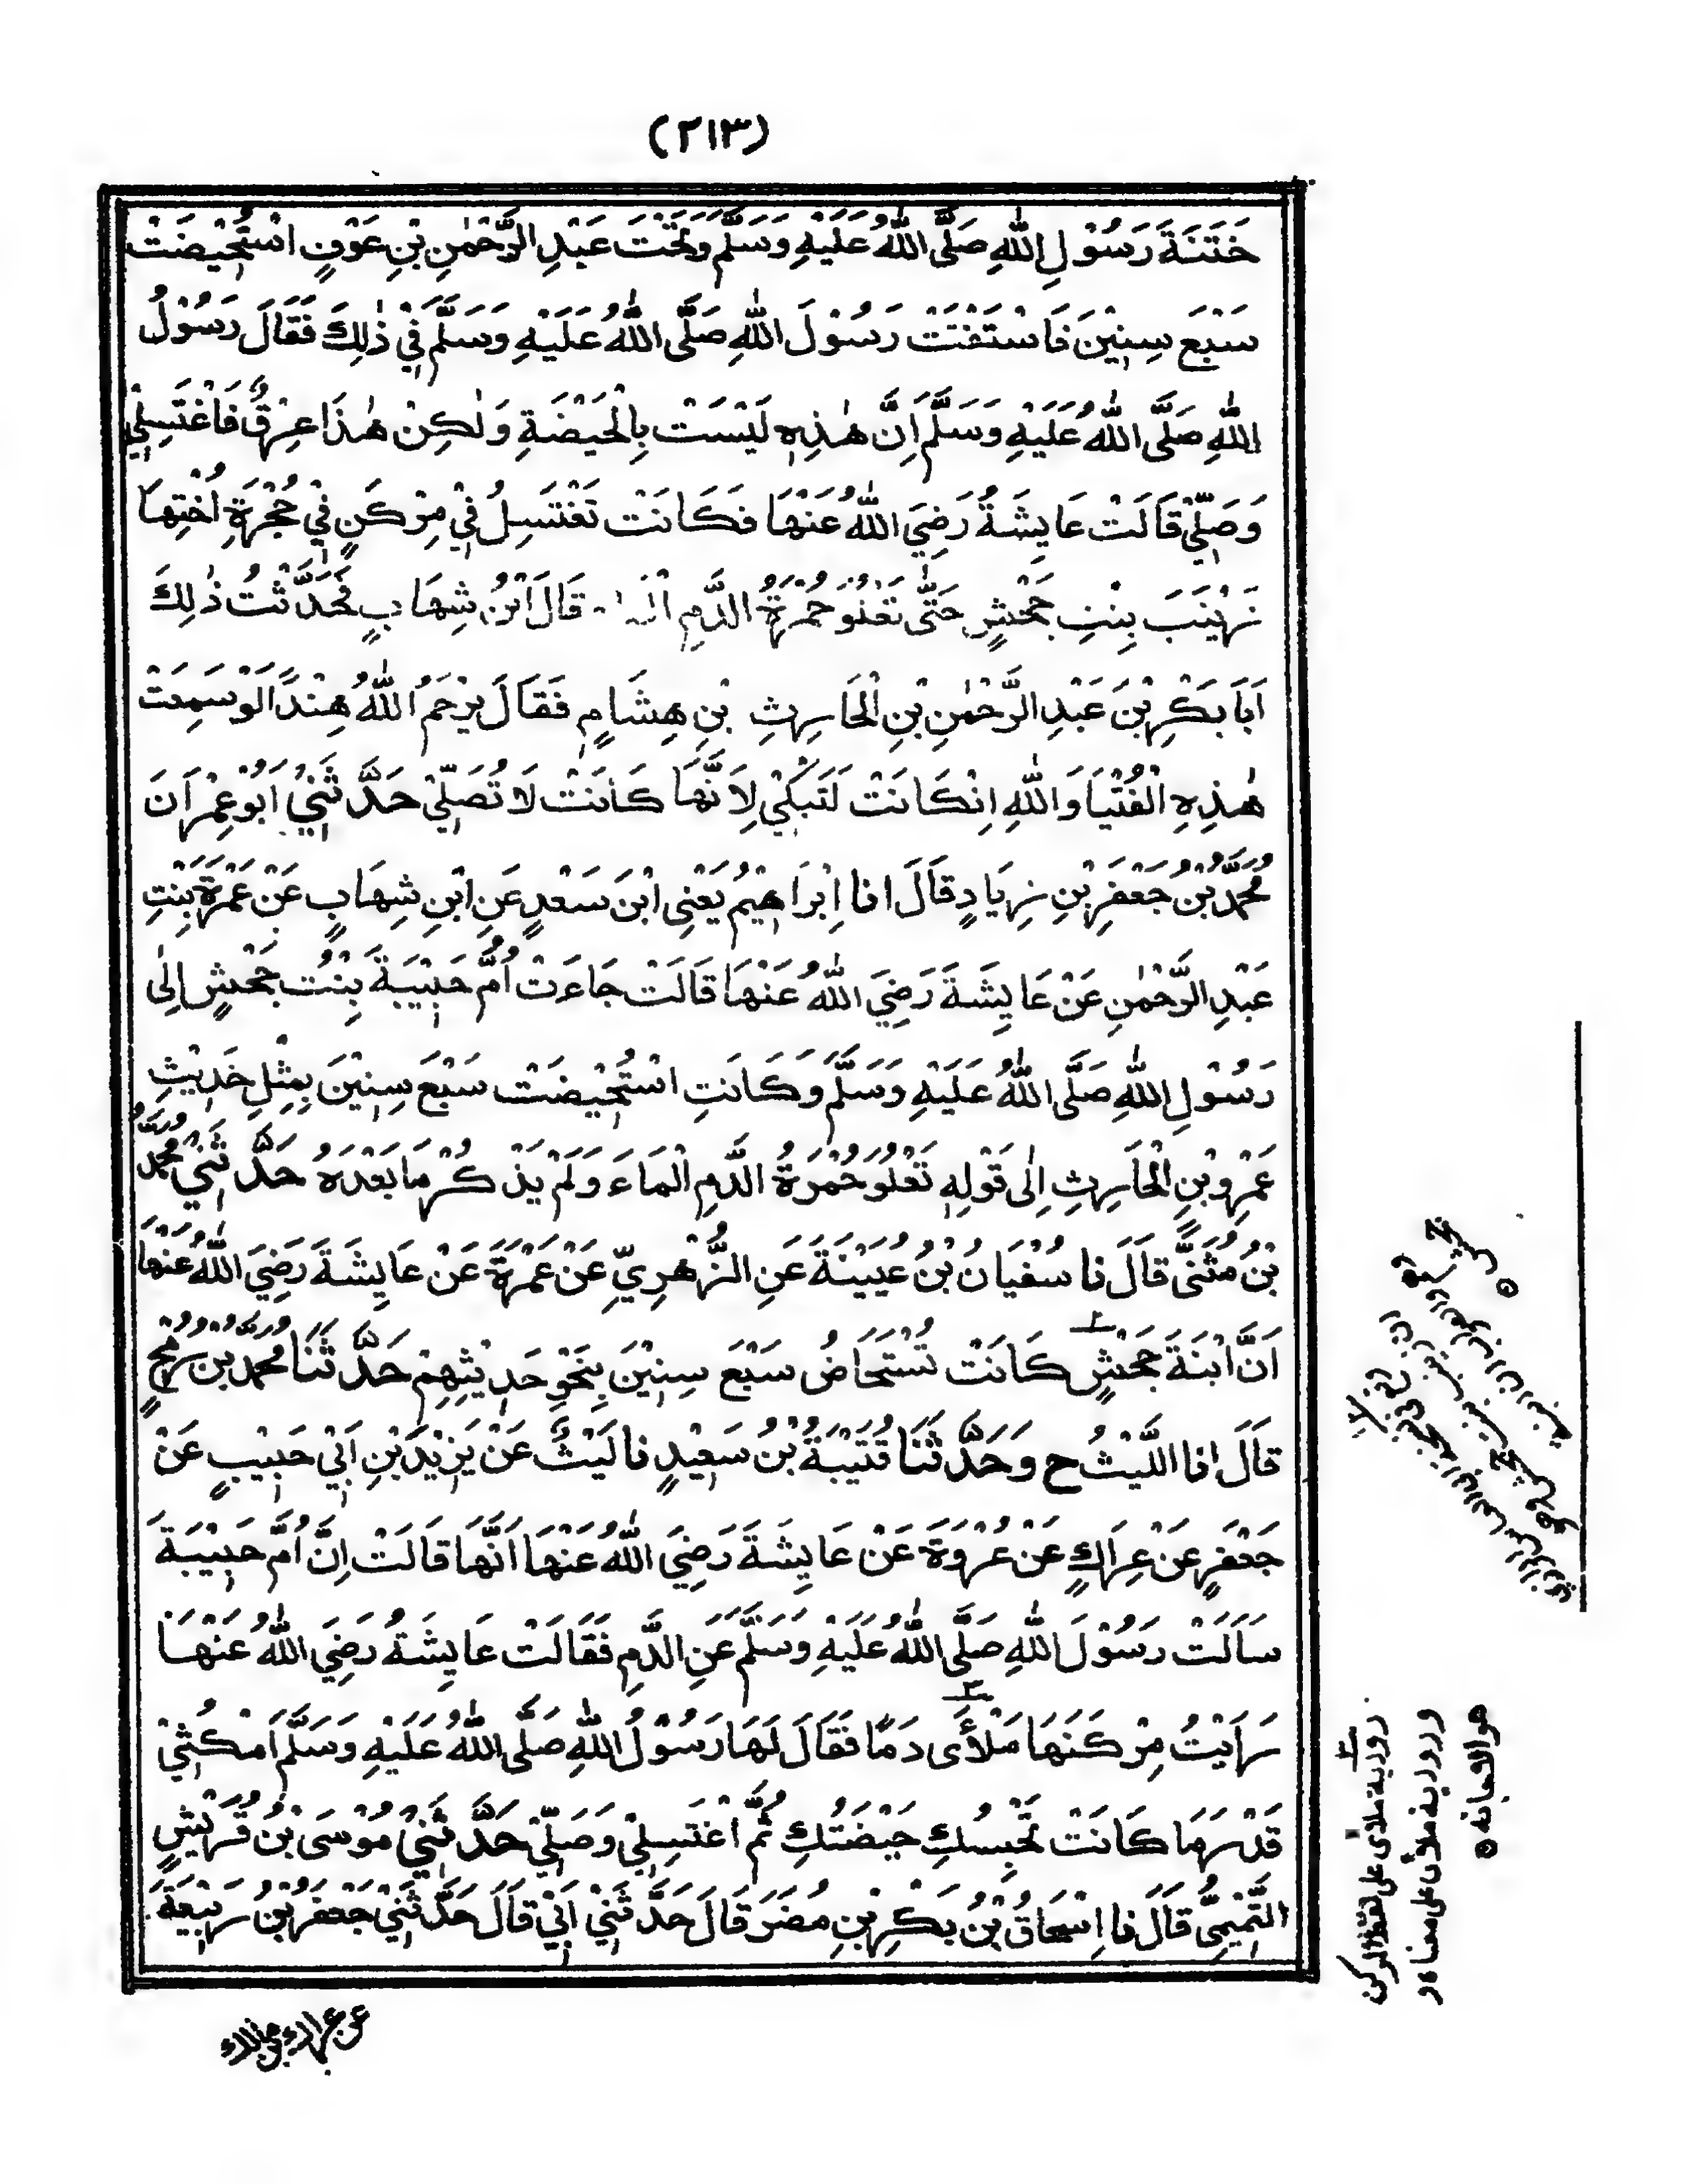 (٢١٣)
خَتَنَةَ رَسُوْلِ اللّٰهِ صَلَّى اللّٰهُ عَلَيْهِ وَسَلَّمَ وَتَحْتَ عَبْدِ الرَّحْمٰنِ بْنِ عَوْفٍ اسْتُحِيْضَتْ
سَبْعَ سِنِيْنَ فَاسْتَفْتَتْ رَسُوْلَ اللّٰهِ صَلَّى اللّٰهُ عَلَيْهِ وَسَلَّمَ فِيْ ذٰلِكَ فَقَالَ رَسُوْلُ
اللّٰهِ صَلَّى اللّٰهُ عَلَيْهِ وَسَلَّمَ اِنَّ هٰذِهٖ لَيْسَتْ بِالْحَيْضَةِ وَلٰكِنْ هٰذَا عِرْقٌ فَاغْتَسِلِيْ
وَصَلِّيْ قَالَتْ عَايِشَةُ رَضِيَ اللّٰهُ عَنْهَا فَكَانَتْ تَغْتَسِلُ فِيْ مِرْكَنٍ فِيْ حُجْرَةِ اُخْتِهَا
زَيْنَبَ بِنْتِ جَحْشٍ حَتّٰى تَعْلُوَ حُمْرَةُ الدَّمِ قَالَ ابْنُ شِهَابٍ فَحَدَّثْتُ ذٰلِكَ
اَبَا بَكْرِ بْنَ عَبْدِ الرَّحْمٰنِ بْنِ الْحَارِثِ بْنِ هِشَامٍ فَقَالَ يَرْحَمُ اللّٰهُ هِنْدًا لَوْ سَمِعَتْ
هٰذِهِ الْفُتْيَا وَاللّٰهِ اِنْ كَانَتْ لَتَبْكِيْ لِاَنَّهَا كَانَتْ لَا تُصَلِّيْ حَدَّثَنِيْ اَبُوْ عِمْرَانَ
مُحَمَّدُ بْنُ جَعْفَرِ بْنِ زِيَادٍ قَالَ انا اِبْرَاهِيْمُ يَعْنِى ابْنَ سَعْدٍ عَنِ ابْنِ شِهَابٍ عَنْ عَمْرَةَ بِنْتِ
عَبْدِ الرَّحْمٰنِ عَنْ عَايِشَةَ رَضِيَ اللّٰهُ عَنْهَا قَالَتْ جَاءَتْ اُمُّ حَبِيْبَةَ بِنْتُ جَحْشٍ اِلٰى
رَسُوْلِ اللّٰهِ صَلَّى اللّٰهُ عَلَيْهِ وَسَلَّمَ وَكَانَتِ اسْتُحِيْضَتْ سَبْعَ سِنِيْنَ بِمِثْلِ حَدِيْثِ
عَمْرِو بْنِ الْحَارِثِ اِلٰى قَوْلِهٖ تَعْلُوَ حُمْرَةُ الدَّمِ الْمَاءَ وَلَمْ يَذْكُرْ مَا بَعْدَهُ حَدَّثَنِيْ مُحَمَّدُ
بْنُ مُثَنًّى قَالَ نا سُفْيَانُ بْنُ عُيَيْنَةَ عَنِ الزُّهْرِيِّ عَنْ عَمْرَةَ عَنْ عَايِشَةَ رَضِيَ اللّٰهُ عَنْهَا
اَنَّ ابْنَةَ جَحْشٍ كَانَتْ تُسْتَحَاضُ سَبْعَ سِنِيْنَ بِنَحْوِ حَدِيْثِهِمْ حَدَّثَنَا مُحَمَّدُ بْنُ رُمْحٍ
قَالَ انا اللَّيْثُ ح وَحَدَّثَنَا قُتَيْبَةُ بْنُ سَعِيْدٍ نا لَيْثٌ عَنْ يَزِيْدَ بْنِ اَبِيْ حَبِيْبٍ عَنْ
جَعْفَرٍ عَنْ عِرَاكٍ عَنْ عُرْوَةَ عَنْ عَايِشَةَ رَضِيَ اللّٰهُ عَنْهَا اَنَّهَا قَالَتْ اِنَّ اُمَّ حَبِيْبَةَ
سَاَلَتْ رَسُوْلَ اللّٰهِ صَلَّى اللّٰهُ عَلَيْهِ وَسَلَّمَ عَنِ الدَّمِ فَقَالَتْ عَايِشَةُ رَضِيَ اللّٰهُ عَنْهَا
رَاَيْتُ مِرْكَنَهَا مَلْأٰى دَمًا فَقَالَ لَهَا رَسُوْلُ اللّٰهِ صَلَّى اللّٰهُ عَلَيْهِ وَسَلَّمَ اَمْكُثِيْ
قَدْرَ مَا كَانَتْ تَحْبِسُكِ حَيْضَتُكِ ثُمَّ اغْتَسِلِيْ وَصَلِّيْ حَدَّثَنِيْ مُوْسَى بْنُ قُرَيْشٍ
التَّمِيْمِىُّ قَالَ نا اِسْحَاقُ بْنُ بَكْرِ بْنِ مُضَرَ قَالَ حَدَّثَنِيْ اَبِيْ قَالَ حَدَّثَنِيْ جَعْفَرُ بْنُ رَبِيْعَةَ
٢ وروي ملاى على لفظة المركن
وروي ملآن على معناه و
هو الاجانة